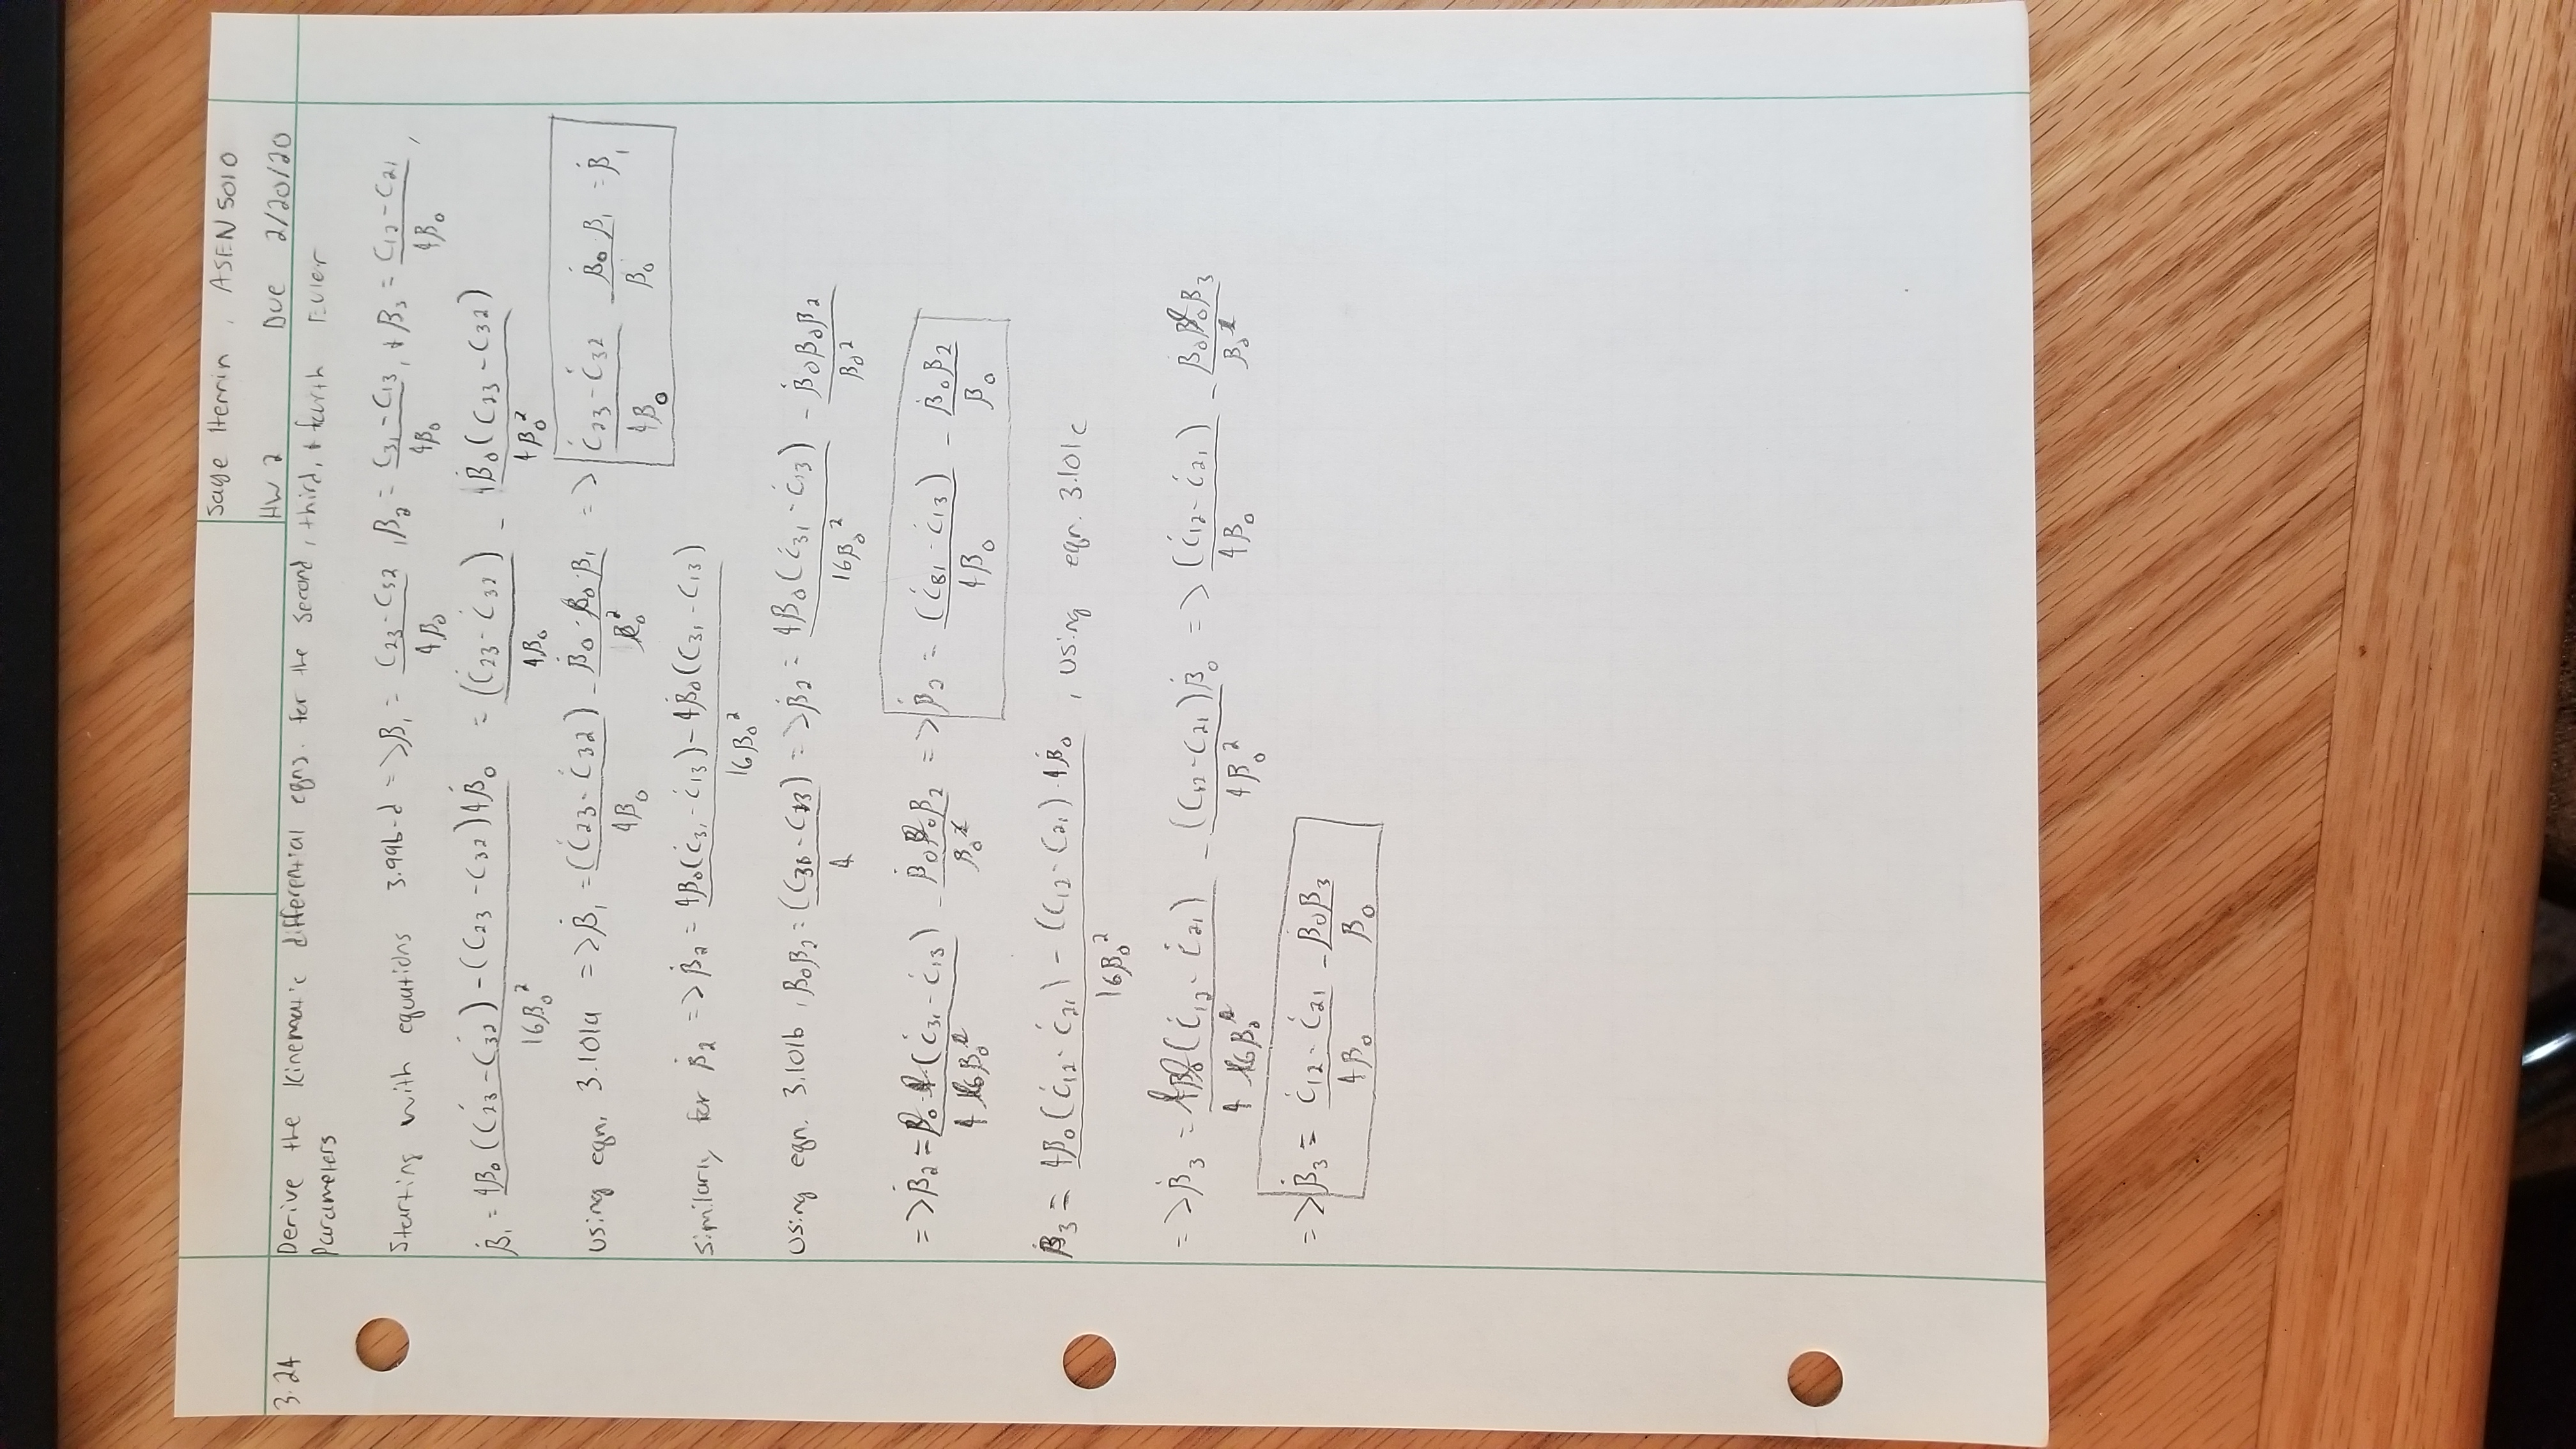 Sage Herrin , ASEN 5010
HW 2 Due 2/20/20
3.24 Derive the Kinematic differential eqns. for the second, third, & fourth Euler
Parameters
Starting with equations 3.99b-d => β₁ = (C₂₃ - C₃₂)/(4β₀) , β₂ = (C₃₁ - C₁₃)/(4β₀) , & β₃ = (C₁₂ - C₂₁)/(4β₀) ,
β̇₁ = (4β₀(Ċ₂₃ - Ċ₃₂) - (C₂₃ - C₃₂)4β̇₀)/(16β₀²) = (Ċ₂₃ - Ċ₃₂)/(4β₀) - β̇₀(C₂₃ - C₃₂)/(4β₀²)
using eqn. 3.101a => β̇₁ = (Ċ₂₃ - Ċ₃₂)/(4β₀) - (β̇₀·β₀·β₁)/(β₀²) => (Ċ₂₃ - Ċ₃₂)/(4β₀) - (β̇₀·β₁)/(β₀) = β̇₁
Similarly for β̇₂ => β̇₂ = (4β₀(Ċ₃₁ - Ċ₁₃) - 4β̇₀(C₃₁ - C₁₃))/(16β₀²)
using eqn. 3.101b , β₀β₂ = (C₃₁ - C₁₃)/4 => β̇₂ = 4β₀(Ċ₃₁ - Ċ₁₃)/(16β₀²) - (β̇₀β₀β₂)/(β₀²)
=> β̇₂ = β₀·4(Ċ₃₁ - Ċ₁₃)/(4 16β₀²) - (β̇₀β₀β₂)/(β₀²) => β̇₂ = (Ċ₃₁ - Ċ₁₃)/(4β₀) - (β̇₀β₂)/(β₀)
β̇₃ = (4β₀(Ċ₁₂ - Ċ₂₁) - (C₁₂ - C₂₁)·4β̇₀)/(16β₀²) , using eqn. 3.101c
=> β̇₃ = 4β₀(Ċ₁₂ - Ċ₂₁)/(4 16β₀²) - (C₁₂ - C₂₁)β̇₀/(4β₀²) => (Ċ₁₂ - Ċ₂₁)/(4β₀) - (β̇₀β₀β₃)/(β₀²)
=> β̇₃ = (Ċ₁₂ - Ċ₂₁)/(4β₀) - (β̇₀β₃)/(β₀)